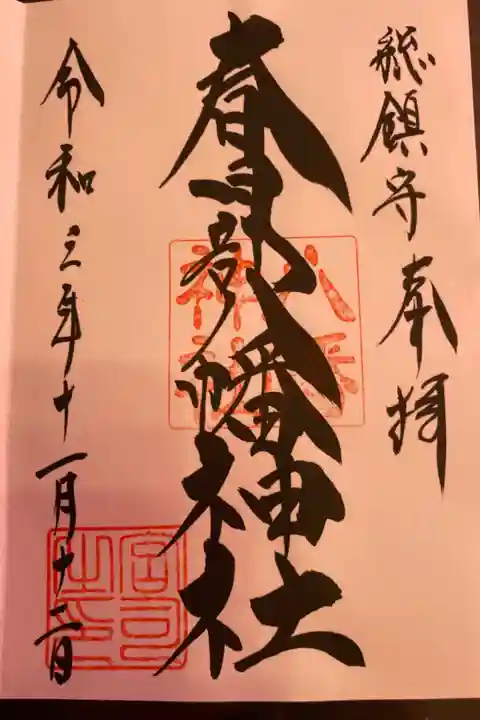 総鎮守 奉拝
春日部八幡神社
八幡
神社
令和三年十一月十二日
宮司
之印